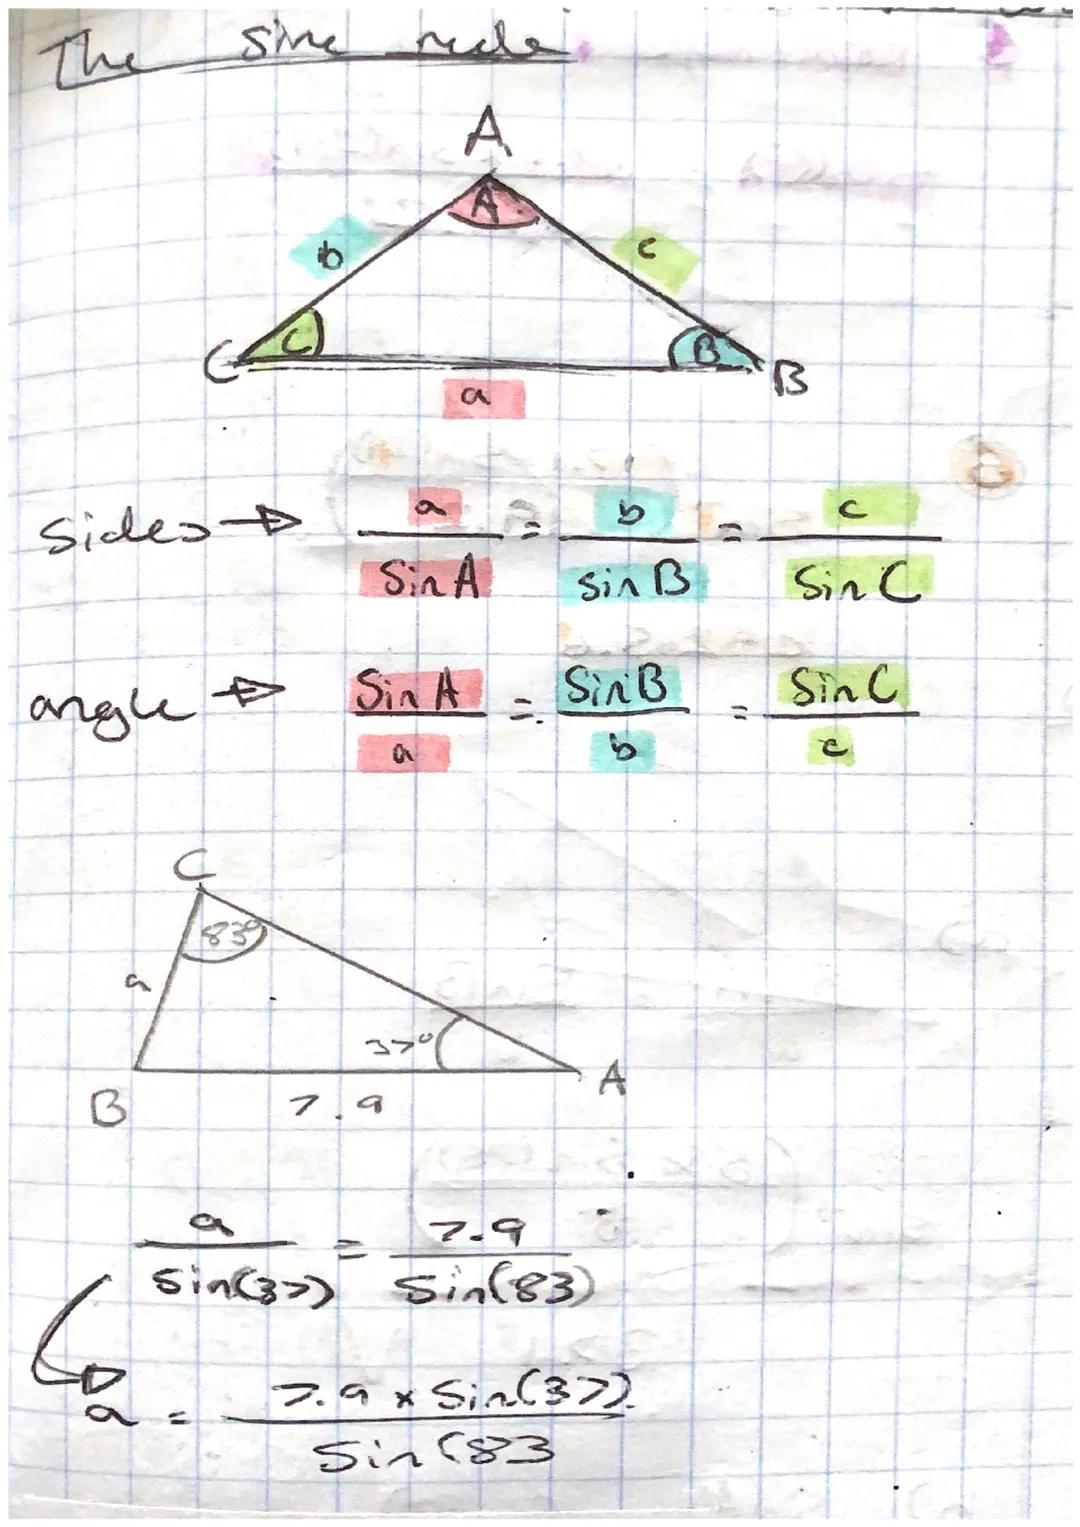 The sine rule
A
A
b
c
C
C
B
B
a
sides → a/SinA = b/sinB = c/SinC
angle → SinA/a = SinB/b = SinC/c
C
83°
a
37°
A
B
7.9
a/Sin(37) = 7.9/Sin(83)
a = 7.9 x Sin(37)/Sin(83